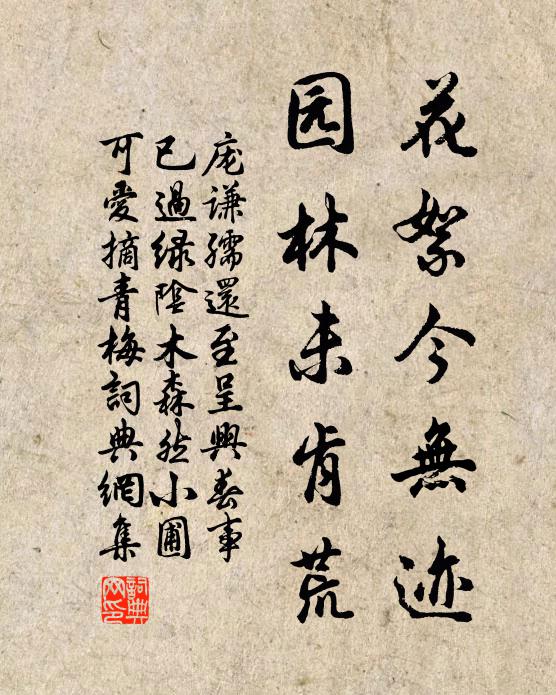 花絮今無迹
园林未肯荒
庞谦孺還至呈興春事
已過绿陰木森然小圃
可愛摘青梅詞典網集
詞典网印